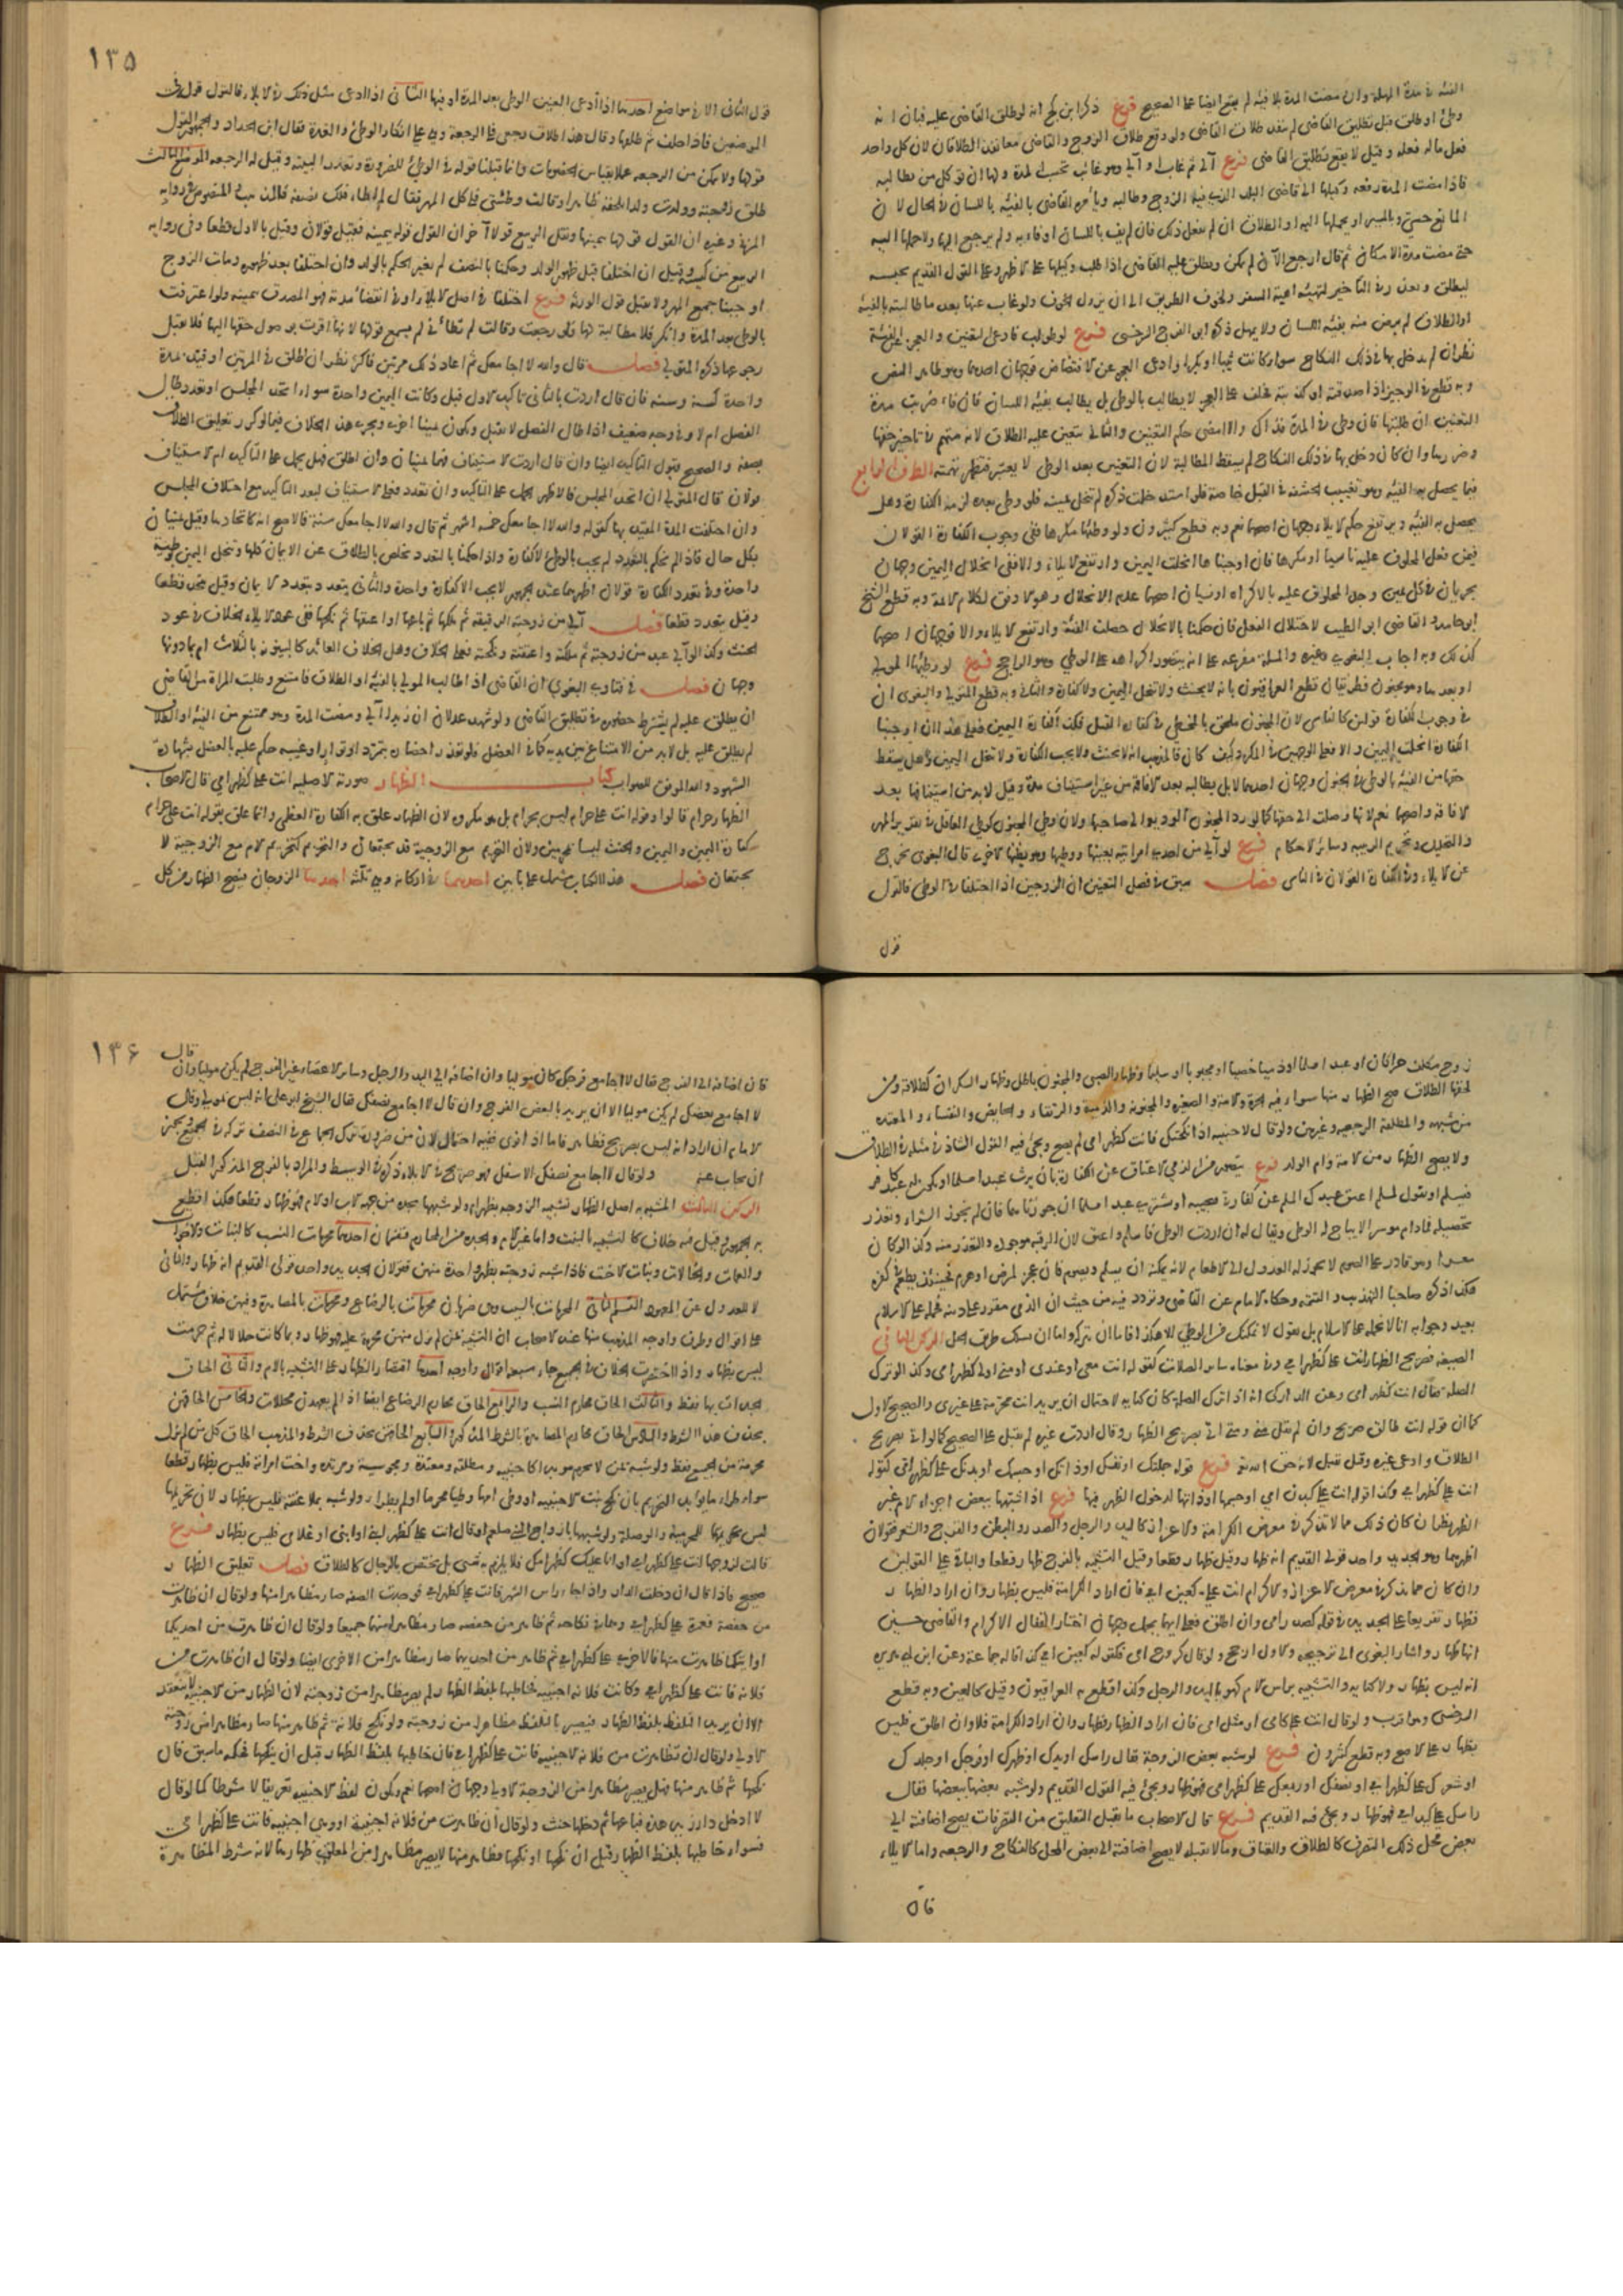 الفئة في مدة المهلة وان مضت المدة بلا فيئة لم يقع ايضا على الصحيح فرع ذكر ابن كج انه لو طلق القاضي عليه فبان انه
وطئ او طلق قبل تطليق القاضي لم ينفذ طلاق القاضي ولو وقع طلاق الزوج والقاضي معا نفذ الطلاقان لان كل واحد
فعل ماله فعله وقيل لا يقع تطليق القاضي فرع آلى ثم غاب او آلى وهو غائب تحسب المدة ولها ان توكل من يطالبه
فاذا مضت المدة رفعه وكيلها الى قاضي البلد الذي فيه الزوج وطالبه ويأمره القاضي بالفيئة باللسان في الحال لان
المانع حسي وبالمسير اليها او بحملها اليه او الطلاق ان لم يفعل ذلك فان لم يف باللسان او فاء به ولم يرجع اليها ولا حملها اليه
حتى مضت مدة الامكان ثم قال ارجع الآن لم يمكن ويطلق عليه القاضي اذا طلب وكيلها على الاظهر وعلى القول القديم يحبسه
ليطلق ويعذر في التأخير لتهيئة اهبة السفر ولخوف الطريق الى ان يزول الخوف ولو غاب عنها بعد ما طالبته بالفيئة
او الطلاق لم يرض منه بفيئة اللسان ولا يمهل ذكره ابو الفرج السرخسي فرع لو طولب فادعى التعنين والعجز عن الفيئة
نظر ان لم يدخل بها في ذلك النكاح سواء كانت ثيبا او بكرا وادعى العجز عن الافتضاض فوجهان احدهما وهو ظاهر النص
وبه قطع في الوجيز اذا صدقته او كذبته فحلف على العجز لا يطالب بالوطئ بل يطالب بفيئة اللسان فان فاء ضربت مدة
التعنين ان طلبتها فان وطئ في المدة فذاك والا امضي حكم التعنين والثاني يتعين عليه الطلاق لانه متهم في تأخير حقها
وضررها وان كان دخل بها في ذلك النكاح لم يسقط المطالبة لان التعنين بعد الوطئ لا يعتبر فتظهر تهمته الطرف الرابع
فيما يحصل به الفيئة وهو تغييب الحشفة في القبل خاصة فلو استدخلت ذكره لم تنحل يمينه فلو وطئ بعده لزمه الكفارة وهل
يحصل به الفيئة ويرتفع حكم الايلاء وجهان اصحهما نعم وبه قطع كثيرون ولو وطئها مكرها ففي وجوب الكفارة القولان
فيمن فعل المحلوف عليه ناسيا او مكرها فان اوجبناها انحلت اليمين وارتفع الايلاء والا ففي انحلال اليمين وجهان
يجريان في كل يمين وجد المحلوف عليه بالاكراه او نسيان اصحهما عدم الانحلال وهو الاوفق لكلام الائمة وبه قطع الشيخ
ابو حامد والقاضي ابو الطيب لاختلال الفعل فان حكمنا بالانحلال حصلت الفيئة وارتفع الايلاء والا فوجهان اصحهما
كذلك وبه اجاب البغوي وغيره والمسئلة مفرعة على انه يتصور اكراهه على الوطئ وهو الراجح فرع لو وطئها المولي
او بعدها وهو مجنون فطريقان قطع العراقيون بانه لا يحنث ولا تنحل اليمين ولا كفارة والثاني وبه قطع المتولي والبغوي ان
في وجوب الكفارة قولين كالناسي لان المجنون ملحق بالمخطئ في كفارة القتل فكذا كفارة اليمين فعلى هذا ان اوجبنا
الكفارة انحلت اليمين والا فعلى الوجهين في المكره وكيف كان فالمذهب انه لا يحنث ولا يجب الكفارة ولا تنحل اليمين وهل يسقط
حقها من الفيئة بالوطئ في الجنون وجهان احدهما لا بل يطالبه بعد الافاقة من غير استيناف مدة وقيل لا بد من استينافها بعد
الافاقة واصحهما نعم لانها وصلت الى حقها كما لو رد المجنون الوديعة الى صاحبها ولان وطئ المجنون كوطئ العاقل في تقرير المهر
والتحليل وتحريم الربيبة وسائر الاحكام فرع لو آلى من احدى امرأتيه بعينها ووطئها وهو يظنها الاخرى قال البغوي يخرج
عن الايلاء وفي الكفارة القولان في الناسي فصل سبق في فصل التعنين ان الزوجين اذا اختلفا في الوطئ فالقول
قول
١٣٥
قول النافي الا في مواضع احدها اذا ادعى العنين الوطئ بعد المدة او فيها الثاني اذا ادعى مثل ذلك في الايلاء فالقول قوله في
الموضعين فاذا حلف ثم طلقها وقال هذا طلاق رجعي فلي الرجعة وهي على انكار الوطئ والعدة فقال ابن الحداد والجمهور القول
قولها ولا يمكن من الرجعة عملا بقياس الخصومات وانما قبلنا قوله في الوطئ للضرورة وتعذر البينة وقيل له الرجعة الموضع الثالث
طلق زوجته وولدت ولدا يلحقه ظاهرا وقالت وطئتني فلي كل المهر فقال لم اطاء فلك نصفه فالمذهب المنصوص في رواية
المزني وغيره ان القول قولها بيمينها ونقل الربيع قولا آخر ان القول قوله بيمينه فقيل قولان وقيل بالاول قطعا وفي رواية
الربيع من كيسه وقيل ان اختلفا قبل ظهور الولد وحكمنا بالنصف لم يغير الحكم بالولد وان اختلفا بعد ظهوره ومات الزوج
اوجبنا جميع المهر ولا يقبل قول الورثة فرع اختلفا في اصل الايلاء او في انقضاء مدته فهو المصدق بيمينه ولو اعترفت
بالوطئ بعد المدة وانكر فلا مطالبة لها فلو رجعت وقالت لم تطأني لم يسمع قولها لانها اقرت بوصول حقها اليها فلا يقبل
رجوعها ذكره المتولي فصل قال والله لا اجامعك ثم اعاد ذلك مرتين فاكثر نظر ان اطلق في المرتين او قيد بمدة
واحدة كسنة وسنة فان قال اردت بالثاني تأكيد الاول قبل وكانت اليمين واحدة سواء اتحد المجلس او تعدد وطال
الفصل ام لا وفي وجه ضعيف اذا طال الفصل لا يقبل ويكون يمينا اخرى ويجري هذا الخلاف فيما لو كرر تعليق الطلاق
بصفة والصحيح قبول التأكيد ايضا وان قال اردت الاستيناف فهما يمينان وان اطلق فهل يحمل على التأكيد ام الاستيناف
قولان قال المتولي ان اتحد المجلس فالاظهر الحمل على التأكيد وان تعدد فعلى الاستيناف لبعد التأكيد مع اختلاف المجلس
وان اختلفت المدة المعقود بها كقوله والله لا اجامعك خمسة اشهر ثم قال والله لا اجامعك سنة فالاصح انه كاتحادها وقيل يمينان
بكل حال فاذا لم نحكم بالتعدد لم يجب بالوطئ الا كفارة واذا حكمنا بالتعدد تخلص بالطلاق عن الايمان كلها وتنحل اليمين بوطئة
واحدة وفي تعدد الكفارة قولان اظهرهما عند الجمهور لا يجب الا كفارة واحدة والثاني يتعدد بتعدد الايمان وقيل قطعا
وقيل يتعدد قطعا فصل آلى من زوجته الرقيقة ثم ملكها ثم باعها او اعتقها ثم نكحها ففي عود الايلاء الخلاف في عود
الحنث وكذا لو آلى عبد من زوجته ثم ملكته واعتقته ونكحته فعلى الخلاف وهل الخلاف العائد كالبينونة بالثلاث ام بما دونها
وجهان فصل في فتاوى البغوي ان القاضي اذا طالب المولي بالفيئة او الطلاق فامتنع وطلبت المرأة من القاضي
ان يطلق عليه لم يشترط حضوره في تطليق القاضي ولو شهد عدلان ان زيدا آلى ومضت المدة وهو ممتنع من الفيئة او الطلاق
لم يطلق عليه بل لا بد من الامتناع بين يديه كما في العضل فلو تعذر احضاره بتمرد او توار او غيبة حكم عليه بالعضل بشهادة
الشهود والله الموفق للصواب كتاب الظهار صورته الاصلية انت علي كظهر امي قال الاصحاب
الظهار حرام قالوا وقوله انت علي حرام ليس بحرام بل هو مكروه لان الظهار علق به الكفارة العظمى وانما علق بقوله انت علي حرام
كفارة اليمين واليمين والحنث ليسا بمحرمين ولان التحريم مع الزوجية قد يجتمعان والتحريم كتحريم الام مع الزوجية لا
يجتمعان فصل هذا الكتاب يشتمل على بابين احدهما في اركانه وهي ثلثة احدها الزوجان فيصح الظهار من كل
زوج مكلف حرا كان او عبدا مسلما او ذميا خصيا او مجبوبا او سليما وظهار الصبي والمجنون باطل وظهار السكران كطلاقه ومن
لحقها الطلاق صح الظهار منها سواء فيه الحرة والامة والصغيرة والمجنونة والذمية والرتقاء والحائض والنفساء والمعتدة
من شبهة والمطلقة الرجعية وغيرهن ولو قال لاجنبية اذا نكحتك فانت كظهر امي لم يصح ويجئ فيه القول الشاذ في مثله في الطلاق
ولا يصح الظهار من الامة وام الولد فرع يتصور من الذمي الاعتاق عن الكفارة بان يرث عبدا مسلما او يكون له عبد كافر
فيسلم او يقول لمسلم اعتق عبدك المسلم عن كفارتي فيجيبه او يشتري عبدا مسلما ان جوزناها فان لم نجوز الشراء وتعذر
تحصيله فما دام موسرا لا يباح له الوطئ ويقال له ان اردت الوطئ فاسلم واعتق لان الرقبة موجودة والتعذر منه وكذا لو كان
معسرا وهو قادر على الصوم لا يجوز له العدول الى الاطعام لانه يمكنه ان يسلم ويصوم فان عجز لمرض او هرم فحينئذ يطعم في كفره
هكذا ذكره صاحبا التهذيب والتتمة وحكاه الامام عن القاضي وتردد فيه من حيث ان الذمي مقر على دينه فحمله على الاسلام
بعيد وجوابه انا لا نحمله على الاسلام بل نقول لا نمكنك من الوطئ الا هكذا فاما ان تتركه واما ان تسلك طريق الحل الركن الثاني
الصيغة فصريح الظهار انت علي كظهر امي وفي معناه سائر الصلات كقوله انت معي او عندي او مني او لي كظهر امي وكذا لو ترك
الصلة فقال انت كظهر امي وعن الداركي انه اذا ترك الصلة كان كناية لاحتمال ان يريد انت محرمة على غيري والصحيح الاول
كما ان قوله انت طالق صريح وان لم يقل مني ومتى اتى بصريح الظهار وقال اردت غيره لم يقبل على الصحيح كما لو اتى بصريح
الطلاق وادعى غيره وقيل يقبل لانه حق الله تعالى فرع قوله جملتك او نفسك او ذاتك او جسمك او بدنك علي كظهر امي كقوله
انت علي كظهر امي وكذا قوله انت علي كبدن امي او جسمها او ذاتها لدخول الظهر فيها فرع اذا شبهها ببعض اجزاء الام غير
الظهر نظر ان كان ذلك مما لا يذكر في معرض الكرامة والاعزاز كاليد والرجل والصدر والبطن والفرج والشعر فقولان
اظهرهما وهو الجديد واحد قولي القديم انه ظهار وقيل ظهار قطعا وقيل التشبيه بالفرج ظهار قطعا والباقي على القولين
وان كان مما يذكر في معرض الاعزاز والاكرام انت علي كعين امي فان اراد الكرامة فليس بظهار وان اراد الظهار
فظهار تفريعا على الجديد في قوله كصدر امي وان اطلق فعلى ايهما يحمل وجهان اختار القفال الاكرام والقاضي حسين
انها ظهار واشار البغوي الى ترجيحه والاول ارجح ولو قال كروح امي فكقوله كعين امي كذا قاله جماعة وعن ابن ابي هريرة
انه ليس بظهار ولا كناية والتشبيه براس الام كهو باليد والرجل وكذا قطع به العراقيون وقيل كالعين وبه قطع
السرخسي وهو اقرب ولو قال انت علي كامي او مثل امي فان اراد الظهار فظهار وان اراد الكرامة فلا وان اطلق فليس
بظهار على الاصح وبه قطع كثيرون فرع لو شبه بعض الزوجة فقال راسك او يدك او ظهرك او فرجك او جلدك
او شعرك علي كظهر امي او نصفك او ربعك علي كظهر امي فهو ظهار ويجئ فيه القول القديم ولو شبه بعضها ببعضها فقال
راسك علي كيد امي فهو ظهار ويجئ فيه القديم فرع قال الاصحاب ما يقبل التعليق من التصرفات يصح اضافته الى
بعض محل ذلك التصرف كالطلاق والعتاق وما لا يقبله لا يصح اضافته الى بعض المحل كالنكاح والرجعة واما الايلاء
فان
١٣٦
قال
فان اضافه الى الفرج فقال لا اجامع فرجك كان موليا وان اضافه الى اليد والرجل وسائر الاعضاء غير الفرج لم يكن موليا وان
لا اجامع بعضك لم يكن موليا الا ان يريد بالبعض الفرج وان قال لا اجامع نصفك فقال الشيخ ابو علي انه ليس بمولي وقال
الامام ان اراد انه ليس بصريح فظاهر فاما اذا نوى ففيه احتمال لان من ضرورة ترك الجماع في النصف تركه في الجميع يمكن
ان يجاب عنه ولو قال لا اجامع نصفك الاسفل فهو صريح في الايلاء ذكره في الوسيط والمراد بالفرج المذكور القبل
الركن الثالث المشبه به اصل الظهار تشبيه الزوجة بظهر ام ولو شبهها بجدة من جهة الاب او الام فهو ظهار قطعا هكذا قطع
به الجمهور وقيل فيه خلاف كالتشبيه بالبنت واما غير الام والجدة من المحارم فقسمان احدهما محرمات النسب كالبنات والاخوات
والعمات والخالات وبنات الاخت فاذا شبه زوجته بظهر واحدة منهن فقولان الجديد واحد قولي القديم انه ظهار والثاني
لا للعدول عن المعهود القسم الثاني المحرمات بالسبب وهن ضربان محرمات بالرضاع ومحرمات بالمصاهرة وفيهن خلاف مشتمل
على اقوال وطرق واوجه المذهب منها عند الاصحاب ان التشبيه بمن لم تزل منهن محرمة عليه فهو ظهار وبما كانت حلالا له ثم حرمت
ليس بظهار واذا اختصرت الخلاف في الجميع جاء سبعة اقوال واوجه احدها اقتصار الظهار على التشبيه بالام والثاني الحاق
الجدات بها فقط والثالث الحاق محارم النسب والرابع الحاق محارم الرضاع ايضا اذا لم يعهدن محللات والخامس الحاقهن
بحذف هذا الشرط والسادس الحاق محارم المصاهرة بالشرط المذكور والسابع الحاقهن بحذف الشرط والمذهب الحاق كل من لم تزل
محرمة من الجميع فقط ولو شبه بمن لا تحرم مؤبدا كاجنبية ومطلقة ومعتدة ومجوسية ومرتدة واخت امرأته فليس بظهار قطعا
سواء طرأ ما يؤبد التحريم بان نكح بنت الاجنبية او وطئ امها وطيا محرما او لم يطرأ ولو شبه بملاعنته فليس بظهار لان تحريمها
ليس للمحرمية والوصلة ولو شبهها بازواج النبي صلعم او قال انت علي كظهر ابي او ابني او غلامي فليس بظهار فرع
قالت لزوجها انت علي كظهر ابي او انا عليك كظهر امك فلا يلزم به شئ بل يختص بالرجال كالطلاق فصل تعليق الظهار
صحيح فاذا قال ان دخلت الدار واذا جاء راس الشهر فانت علي كظهر امي فوجدت الصفة صار مظاهرا منها ولو قال ان ظاهرت
من حفصة فعمرة علي كظهر امي وهما في نكاحه ثم ظاهر من حفصة صار مظاهرا منهما جميعا ولو قال ان ظاهرت من احديكما
او ايتكما ظاهرت منها فالاخرى علي كظهر امي ثم ظاهر من احديهما صار مظاهرا من الاخرى ايضا ولو قال ان ظاهرت من
فلانة فانت علي كظهر امي وكانت فلانة اجنبية فخاطبها بلفظ الظهار لم يصر مظاهرا من زوجته لان الظهار من الاجنبية لا ينعقد
الا ان يريد التلفظ بلفظ الظهار فيصير بالتلفظ مظاهرا من زوجته ولو نكح فلانة ثم ظاهر منها صار مظاهرا من زوجته
الاولى ولو قال ان تظاهرت من فلانة الاجنبية فانت علي كظهر امي فان خاطبها بلفظ الظهار قبل ان ينكحها فحكمه ما سبق فان
نكحها ثم ظاهر منها فهل يصير مظاهرا من الزوجة الاولى وجهان اصحهما نعم ويكون لفظ الاجنبية تعريفا لا شرطا كما لو قال
لا ادخل دار زيد هذه فباعها ثم دخلها حنث ولو قال ان ظاهرت من فلانة اجنبية او وهي اجنبية فانت علي كظهر امي
فسواء خاطبها بلفظ الظهار قبل ان نكحها او نكحها فظاهر منها لا يصير مظاهرا من المعلق ظهارها لانه شرط المظاهرة